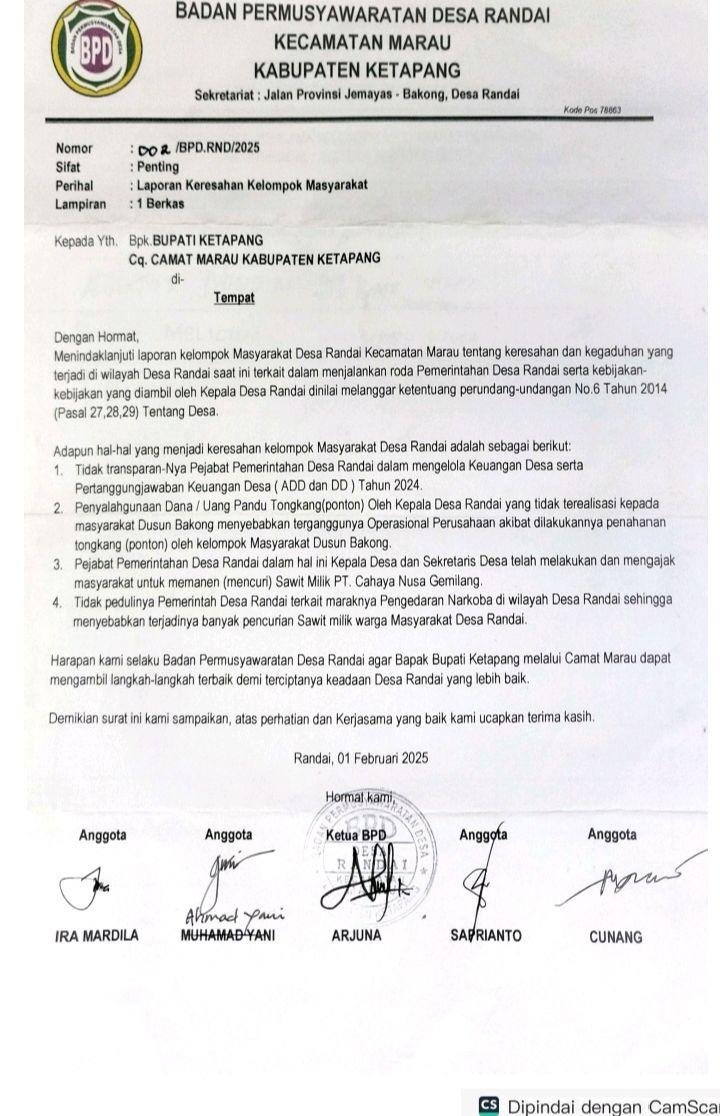 BPD
BADAN PERMUSYAWARATAN DESA RANDAI
KECAMATAN MARAU
KABUPATEN KETAPANG
Sekretariat : Jalan Provinsi Jemayas - Bakong, Desa Randai
Kode Pos 78863
Nomor : 002 /BPD.RND/2025
Sifat : Penting
Perihal : Laporan Keresahan Kelompok Masyarakat
Lampiran : 1 Berkas
Kepada Yth. Bpk.BUPATI KETAPANG
Cq. CAMAT MARAU KABUPATEN KETAPANG
di-
Tempat
Dengan Hormat,
Menindaklanjuti laporan kelompok Masyarakat Desa Randai Kecamatan Marau tentang keresahan dan kegaduhan yang
terjadi di wilayah Desa Randai saat ini terkait dalam menjalankan roda Pemerintahan Desa Randai serta kebijakan-
kebijakan yang diambil oleh Kepala Desa Randai dinilai melanggar ketentuang perundang-undangan No.6 Tahun 2014
(Pasal 27,28,29) Tentang Desa.
Adapun hal-hal yang menjadi keresahan kelompok Masyarakat Desa Randai adalah sebagai berikut:
1. Tidak transparan-Nya Pejabat Pemerintahan Desa Randai dalam mengelola Keuangan Desa serta
Pertanggungjawaban Keuangan Desa ( ADD dan DD ) Tahun 2024.
2. Penyalahgunaan Dana / Uang Pandu Tongkang(ponton) Oleh Kepala Desa Randai yang tidak terealisasi kepada
masyarakat Dusun Bakong menyebabkan terganggunya Operasional Perusahaan akibat dilakukannya penahanan
tongkang (ponton) oleh kelompok Masyarakat Dusun Bakong.
3. Pejabat Pemerintahan Desa Randai dalam hal ini Kepala Desa dan Sekretaris Desa telah melakukan dan mengajak
masyarakat untuk memanen (mencuri) Sawit Milik PT. Cahaya Nusa Gemilang.
4. Tidak pedulinya Pemerintah Desa Randai terkait maraknya Pengedaran Narkoba di wilayah Desa Randai sehingga
menyebabkan terjadinya banyak pencurian Sawit milik warga Masyarakat Desa Randai.
Harapan kami selaku Badan Permusyawaratan Desa Randai agar Bapak Bupati Ketapang melalui Camat Marau dapat
mengambil langkah-langkah terbaik demi terciptanya keadaan Desa Randai yang lebih baik.
Demikian surat ini kami sampaikan, atas perhatian dan Kerjasama yang baik kami ucapkan terima kasih.
Randai, 01 Februari 2025
Hormat kami,
Anggota Anggota Ketua BPD Anggota Anggota
DESA
RANDAI
Ahmad Yani
IRA MARDILA MUHAMAD YANI ARJUNA SAPRIANTO CUNANG
CS Dipindai dengan CamSca